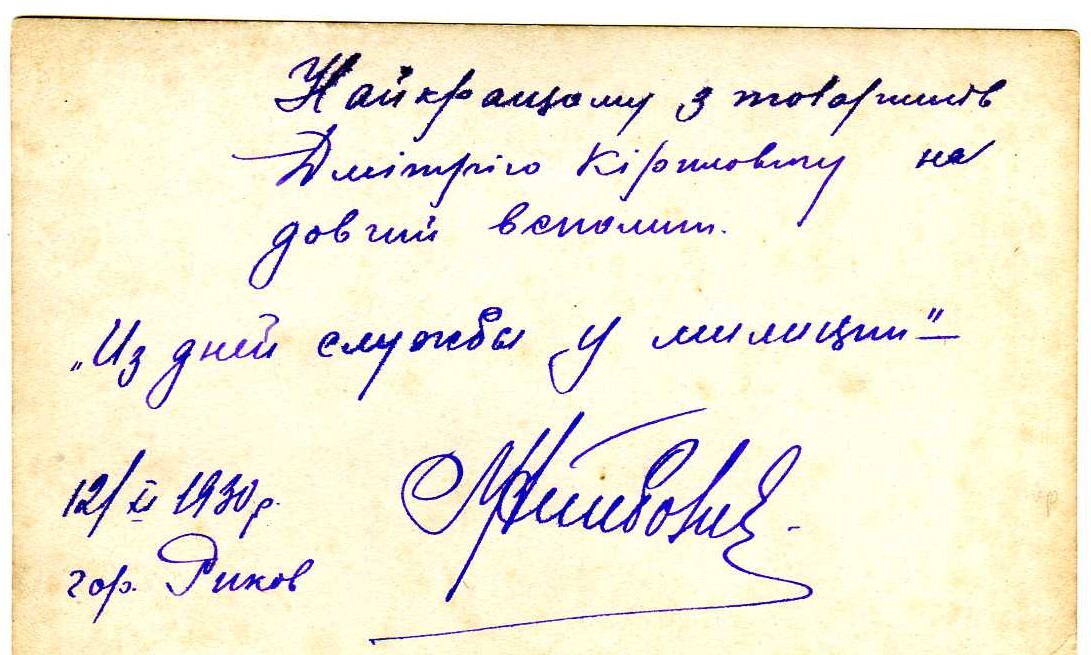 Найкращому з товаришів
Дмітрію Кіриловичу на
довгий вспомин.
„Из дней службы у милиции"
12/XI 1930 р.
гор. Риков